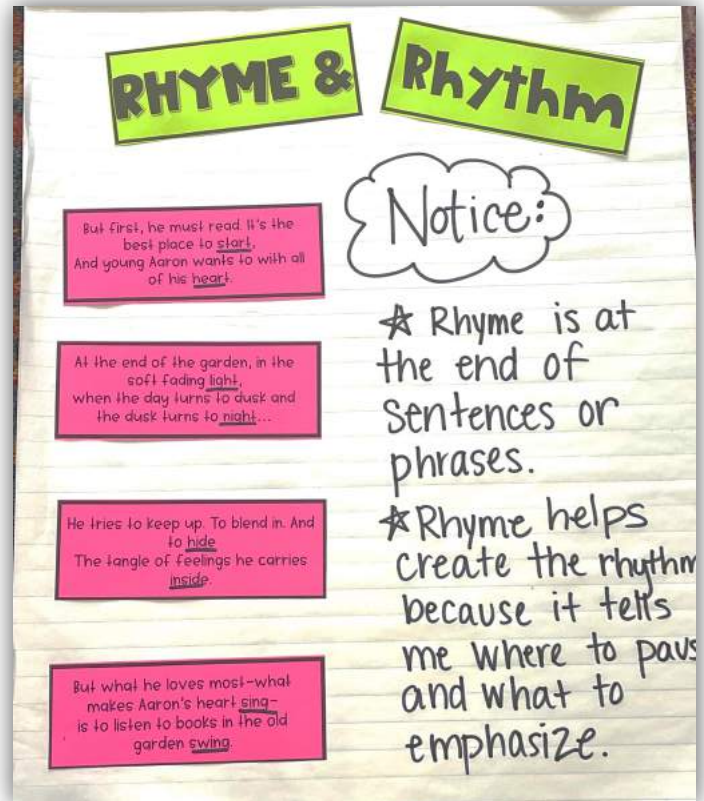 RHYME & Rhythm
But first, he must read. It's the
best place to start,
And young Aaron wants to with all
of his heart.
At the end of the garden, in the
soft fading light,
when the day turns to dusk and
the dusk turns to night...
He tries to keep up. To blend in. And
to hide
The tangle of feelings he carries
inside.
But what he loves most-what
makes Aaron's heart sing-
is to listen to books in the old
garden swing.
Notice:
☆ Rhyme is at
the end of
sentences or
phrases.
☆ Rhyme helps
create the rhythm
because it tells
me where to paus
and what to
emphasize.